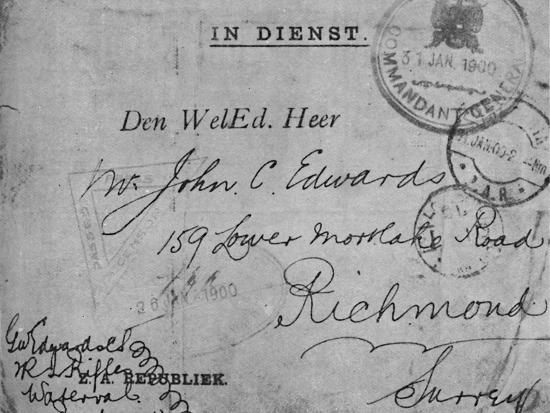 IN DIENST.
31 JAN. 1900
COMMANDANT GENERAAL
Den WelEd. Heer
Mr. John C. Edwards
159 Lower Mortlake Road
Richmond
Surrey
PASSED
CENSOR
26 JAN 1900
G. Edwards
Rifles
Waterval
Z. A. REPUBLIEK.